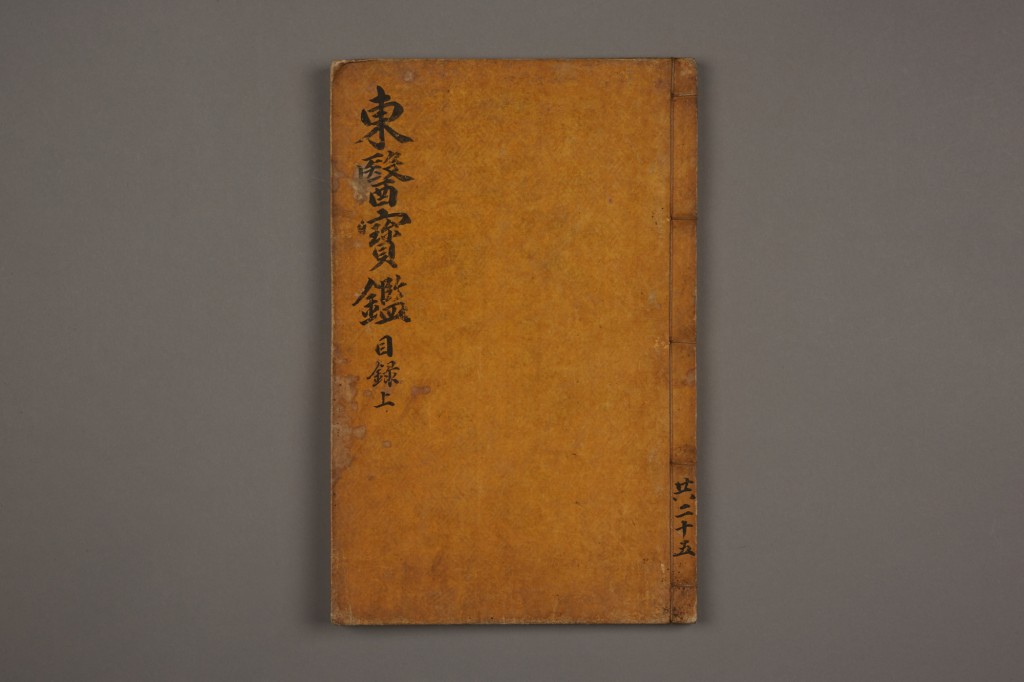 東醫寶鑑 目録上
共二十五